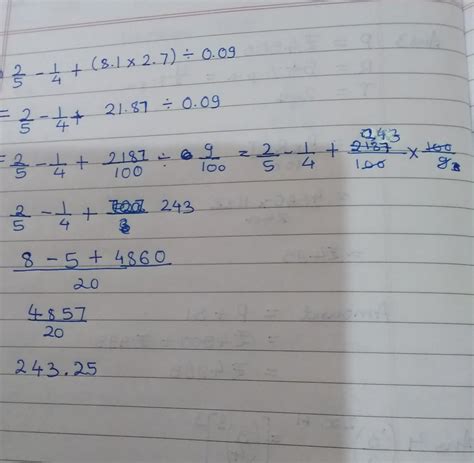 2/5 - 1/4 + (8.1 × 2.7) ÷ 0.09
= 2/5 - 1/4 + 21.87 ÷ 0.09
= 2/5 - 1/4 + 2187/100 ÷ 9/100 = 2/5 - 1/4 + 243 2187/100 × 100/9
2/5 - 1/4 + 243
8 - 5 + 4860/20
4857/20
243.25